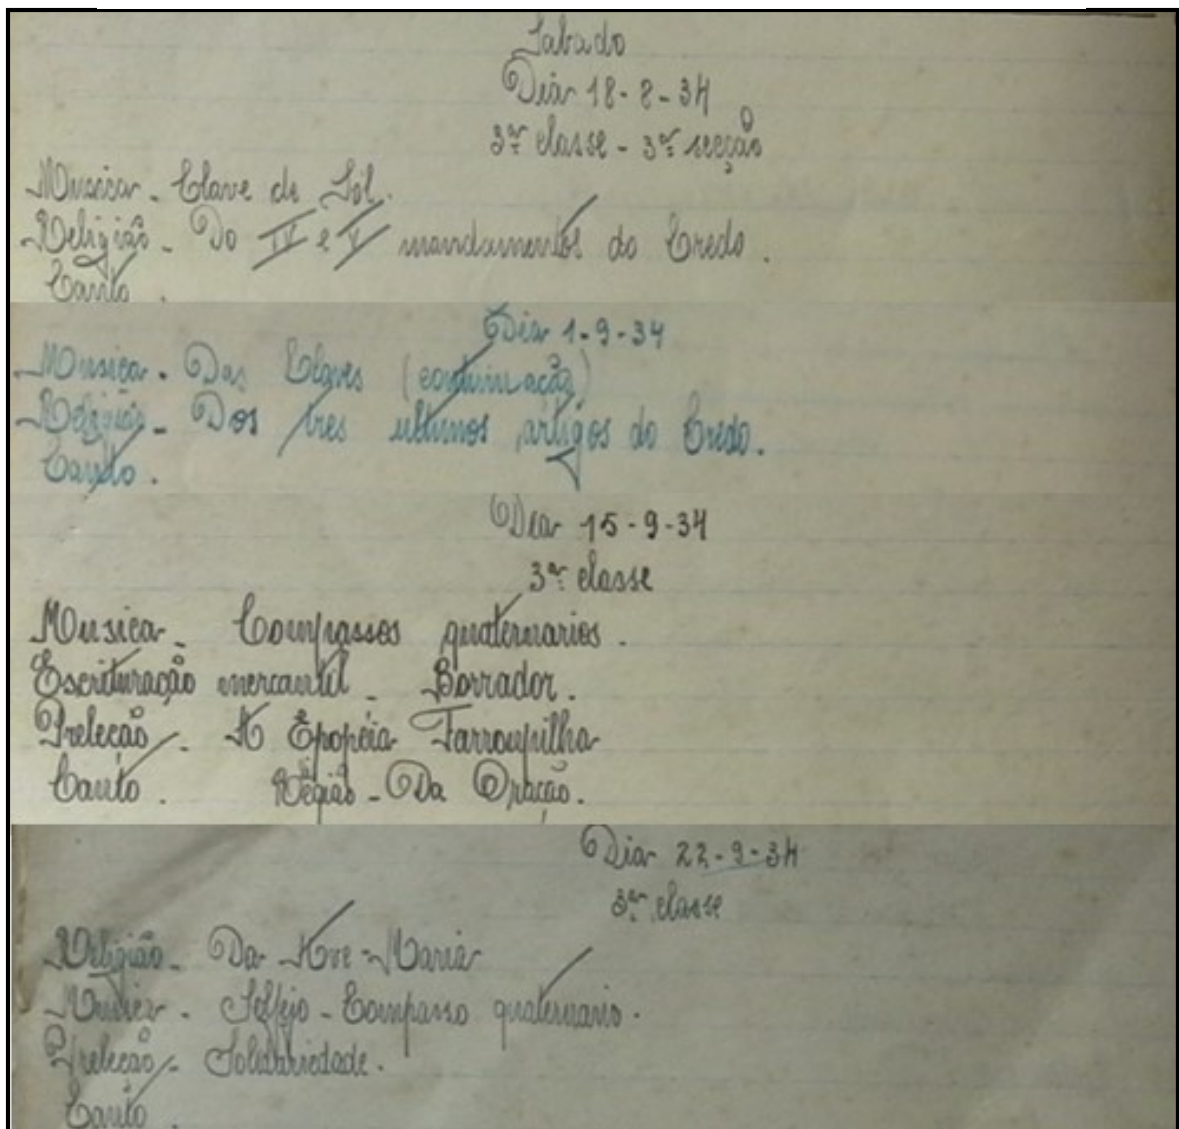 Sabado
Dia 18-8-34
3ª classe - 3ª secção
Musica - Clave de Sól.
Religião - Do IV e V mandamentos do Credo.
Canto.
Dia 1-9-34
Musica - Das Claves (continuação)
Religião - Dos tres ultimos artigos do Credo.
Canto.
Dia 15-9-34
3ª classe
Musica - Compassos quaternarios.
Escrituração mercantil - Borrador.
Preleção - A Epopéia Farroupilha
Canto. Região - Da Oração.
Dia 22-9-34
3ª classe
Religião - Da Ave-Maria
Musica - Solfejo - Compasso quaternario.
Preleção - Solidariedade.
Canto.